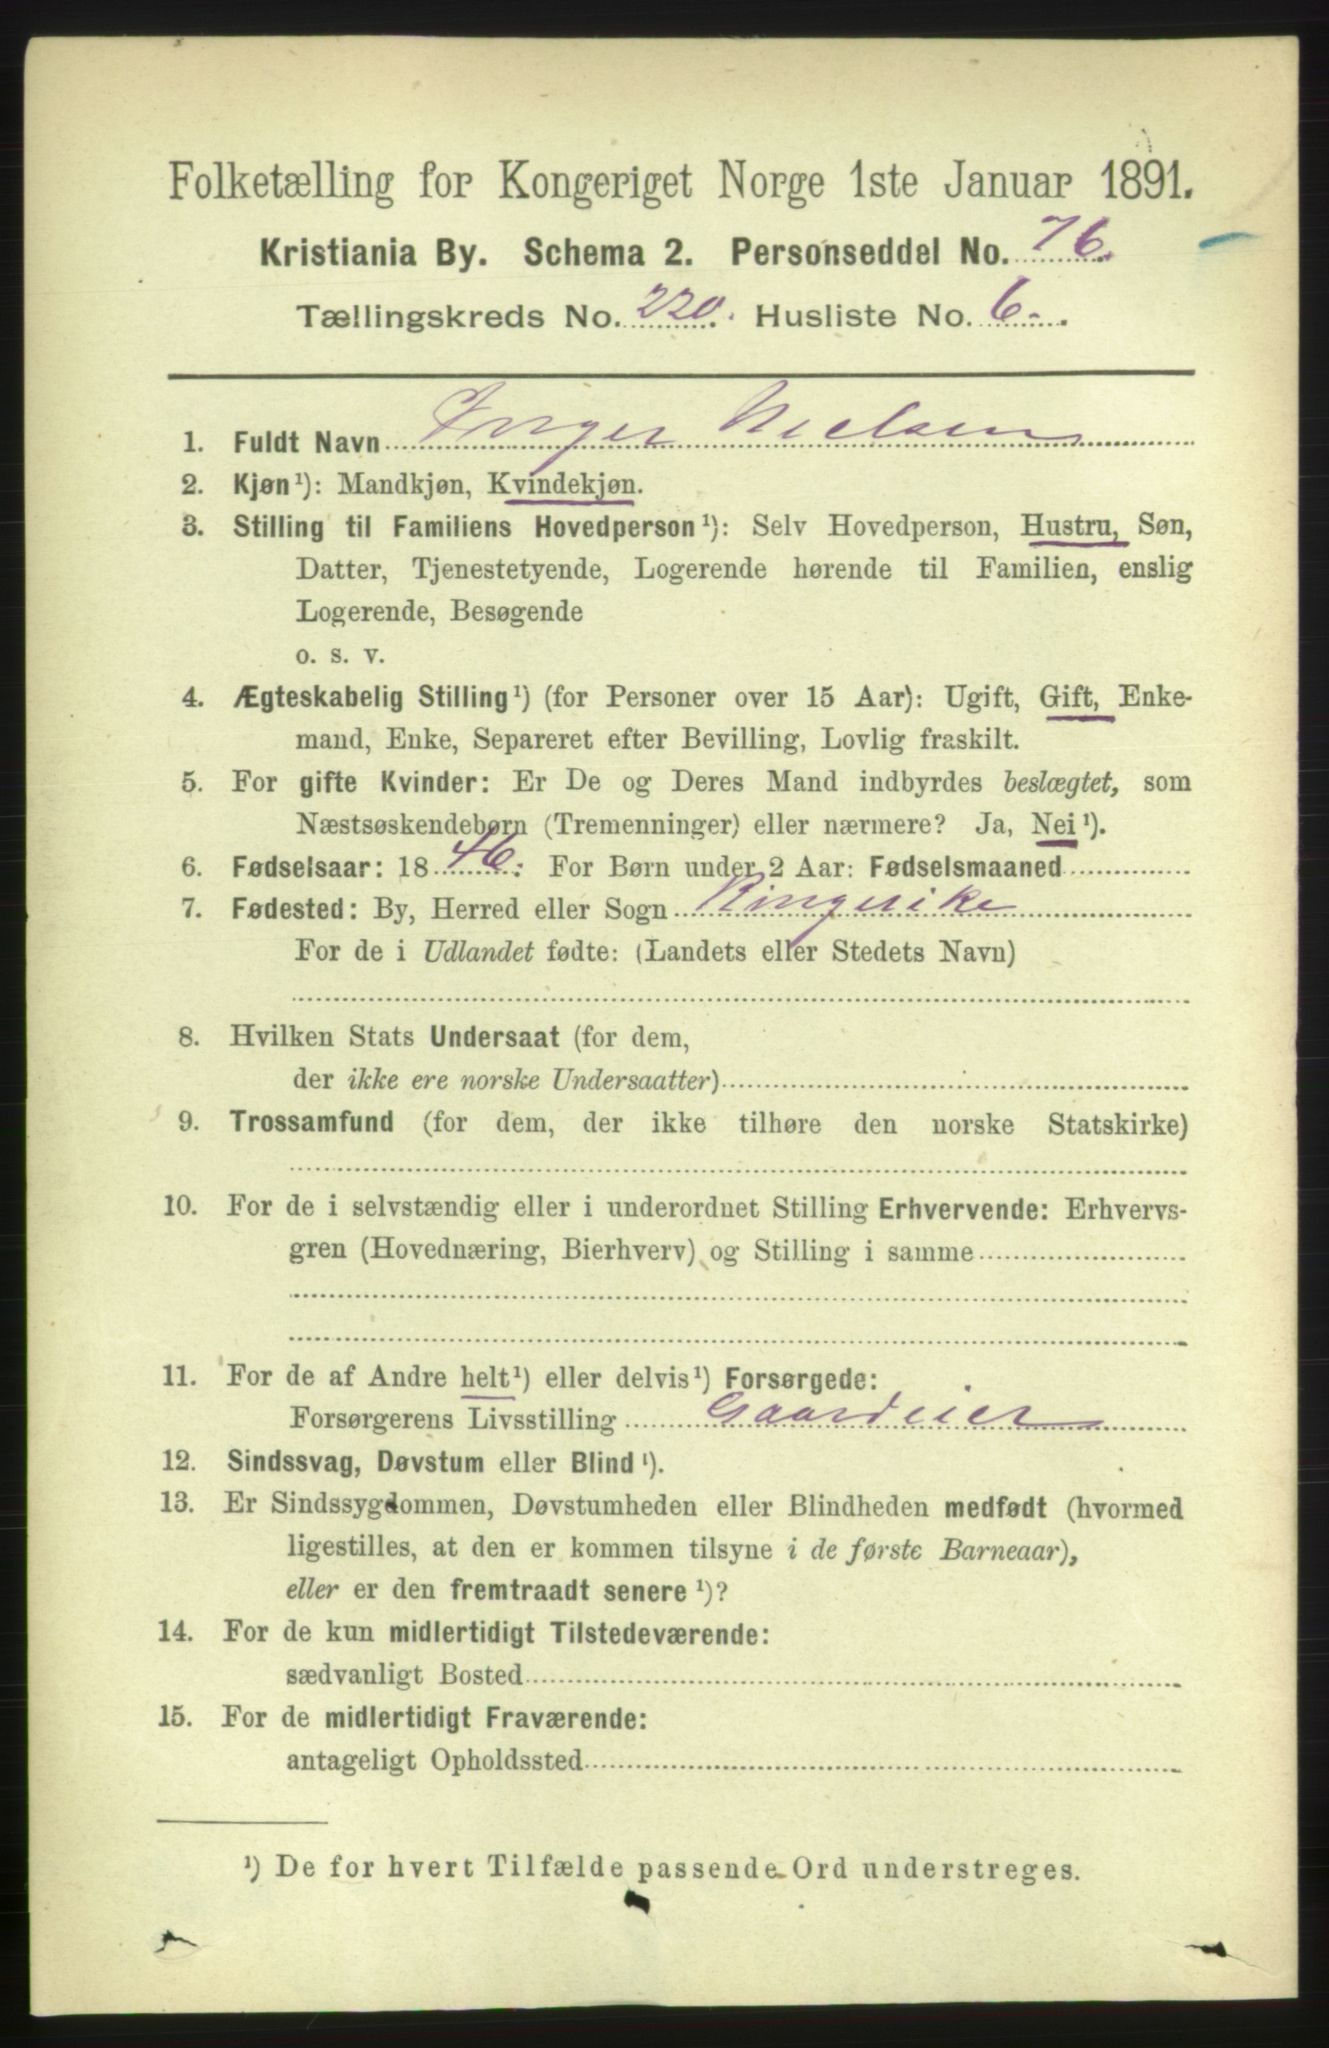 Folketælling for Kongeriget Norge 1ste Januar 1891.
Kristiania By. Schema 2. Personseddel No. 76.
Tællingskreds No. 220. Husliste No. 6.
1. Fuldt Navn Inger Nielsen
2. Kjøn¹): Mandkjøn, Kvindekjøn.
3. Stilling til Familiens Hovedperson¹): Selv Hovedperson, Hustru, Søn,
Datter, Tjenestetyende, Logerende hørende til Familien, enslig
Logerende, Besøgende
o. s. v.
4. Ægteskabelig Stilling¹) (for Personer over 15 Aar): Ugift, Gift, Enke-
mand, Enke, Separeret efter Bevilling, Lovlig fraskilt.
5. For gifte Kvinder: Er De og Deres Mand indbyrdes beslægtet, som
Næstsøskendebørn (Tremenninger) eller nærmere? Ja, Nei¹).
6. Fødselsaar: 1846. For Børn under 2 Aar: Fødselsmaaned
7. Fødested: By, Herred eller Sogn Ringerike
For de i Udlandet fødte: (Landets eller Stedets Navn)
8. Hvilken Stats Undersaat (for dem,
der ikke ere norske Undersaatter)
9. Trossamfund (for dem, der ikke tilhøre den norske Statskirke)
10. For de i selvstændig eller i underordnet Stilling Erhvervende: Erhvervs-
gren (Hovednæring, Bierhverv) og Stilling i samme
11. For de af Andre helt¹) eller delvis¹) Forsørgede:
Forsørgerens Livsstilling Gaardeier
12. Sindssvag, Døvstum eller Blind¹).
13. Er Sindssygdommen, Døvstumheden eller Blindheden medfødt (hvormed
ligestilles, at den er kommen tilsyne i de første Barneaar),
eller er den fremtraadt senere¹)?
14. For de kun midlertidigt Tilstedeværende:
sædvanligt Bosted
15. For de midlertidigt Fraværende:
antageligt Opholdssted
¹) De for hvert Tilfælde passende Ord understreges.